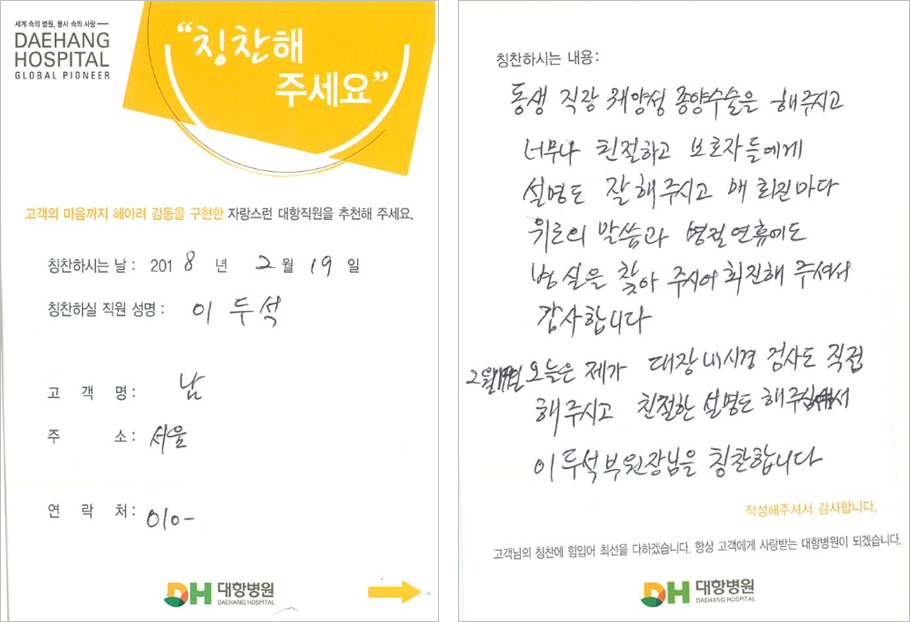 세계 속의 병원, 봉사 속의 사랑
DAEHANG
HOSPITAL
GLOBAL PIONEER
“칭찬해
주세요”
고객의 마음까지 헤아려 감동을 구현한 자랑스런 대항직원을 추천해 주세요.
칭찬하시는 날 : 2018 년 2월 19 일
칭찬하실 직원 성명 : 이 두석
고 객 명 : 남
주 소 : 서울
연 락 처 : 010-
DH 대항병원
DAEHANG HOSPITAL
칭찬하시는 내용 :
동생 직장 궤양성 종양수술은 해주시고
너무나 친절하고 보호자들에게
설명도 잘해주시고 매 회진마다
위로의 말씀과 명절연휴에도
병실을 찾아 주시어 회진해 주셔서
감사합니다
2월19일 오늘은 제가 대장내시경 검사도 직접
해주시고 친절한 설명도 해주셔서
이두석부원장님을 칭찬합니다
작성해주셔서 감사합니다.
고객님의 칭찬에 힘입어 최선을 다하겠습니다. 항상 고객에게 사랑받는 대항병원이 되겠습니다.
DH 대항병원
DAEHANG HOSPITAL